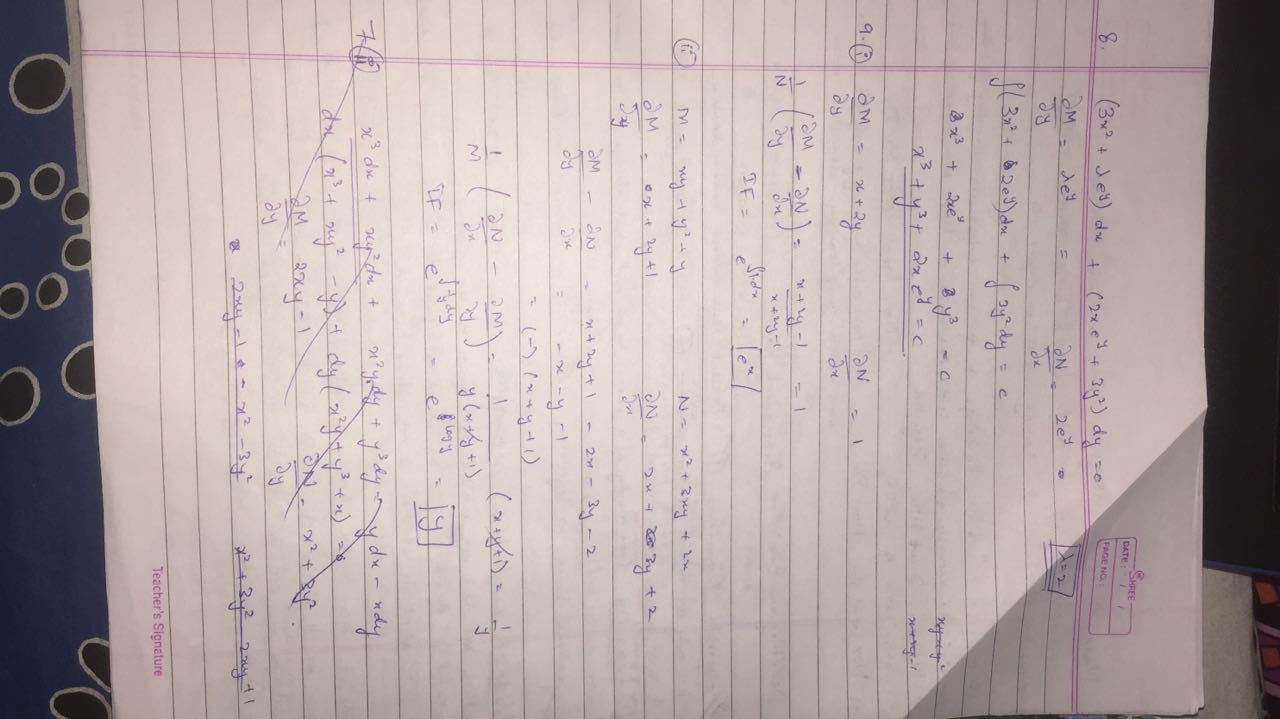 SHREE
DATE: / /
PAGE NO.:
8. (3x² + λe^y) dx + (2xe^y + 3y²) dy = 0
∂M/∂y = λe^y = ∂N/∂x = 2e^y λ=2
∫(3x² + 2e^y)dx + ∫3y²dy = c
x³ + 2xe^y + y³ = c
x³ + y³ + 2xe^y = c
9. (i) ∂M/∂y = x+2y ∂N/∂x = 1
1/N (∂M/∂y - ∂N/∂x) = x+2y-1/x+2y-1 = 1
IF = e^∫1.dx = e^x
(ii) M = xy + y² + y N = x² + 3xy + 2x
∂M/∂y = x + 2y + 1 ∂N/∂x = 2x + 3y + 2
∂M/∂y - ∂N/∂x = x + 2y + 1 - 2x - 3y - 2
= -x - y - 1
= (-) (x+y+1)
1/M (∂N/∂x - ∂M/∂y) = 1/y(x+y+1) (x+y+1) = 1/y
IF = e^∫1/y dy = e^log y = y
7. (ii) x³dx + xy²dx + x²ydy + y³dy = ydx - xdy
dx (x³ + xy² - y) + dy (x²y + y³ + x) = 0
∂M/∂y = 2xy - 1 ∂N/∂y = x² + 3y²
2xy - 1 - x² - 3y² x² + 3y² - 2xy + 1
Teacher's Signature